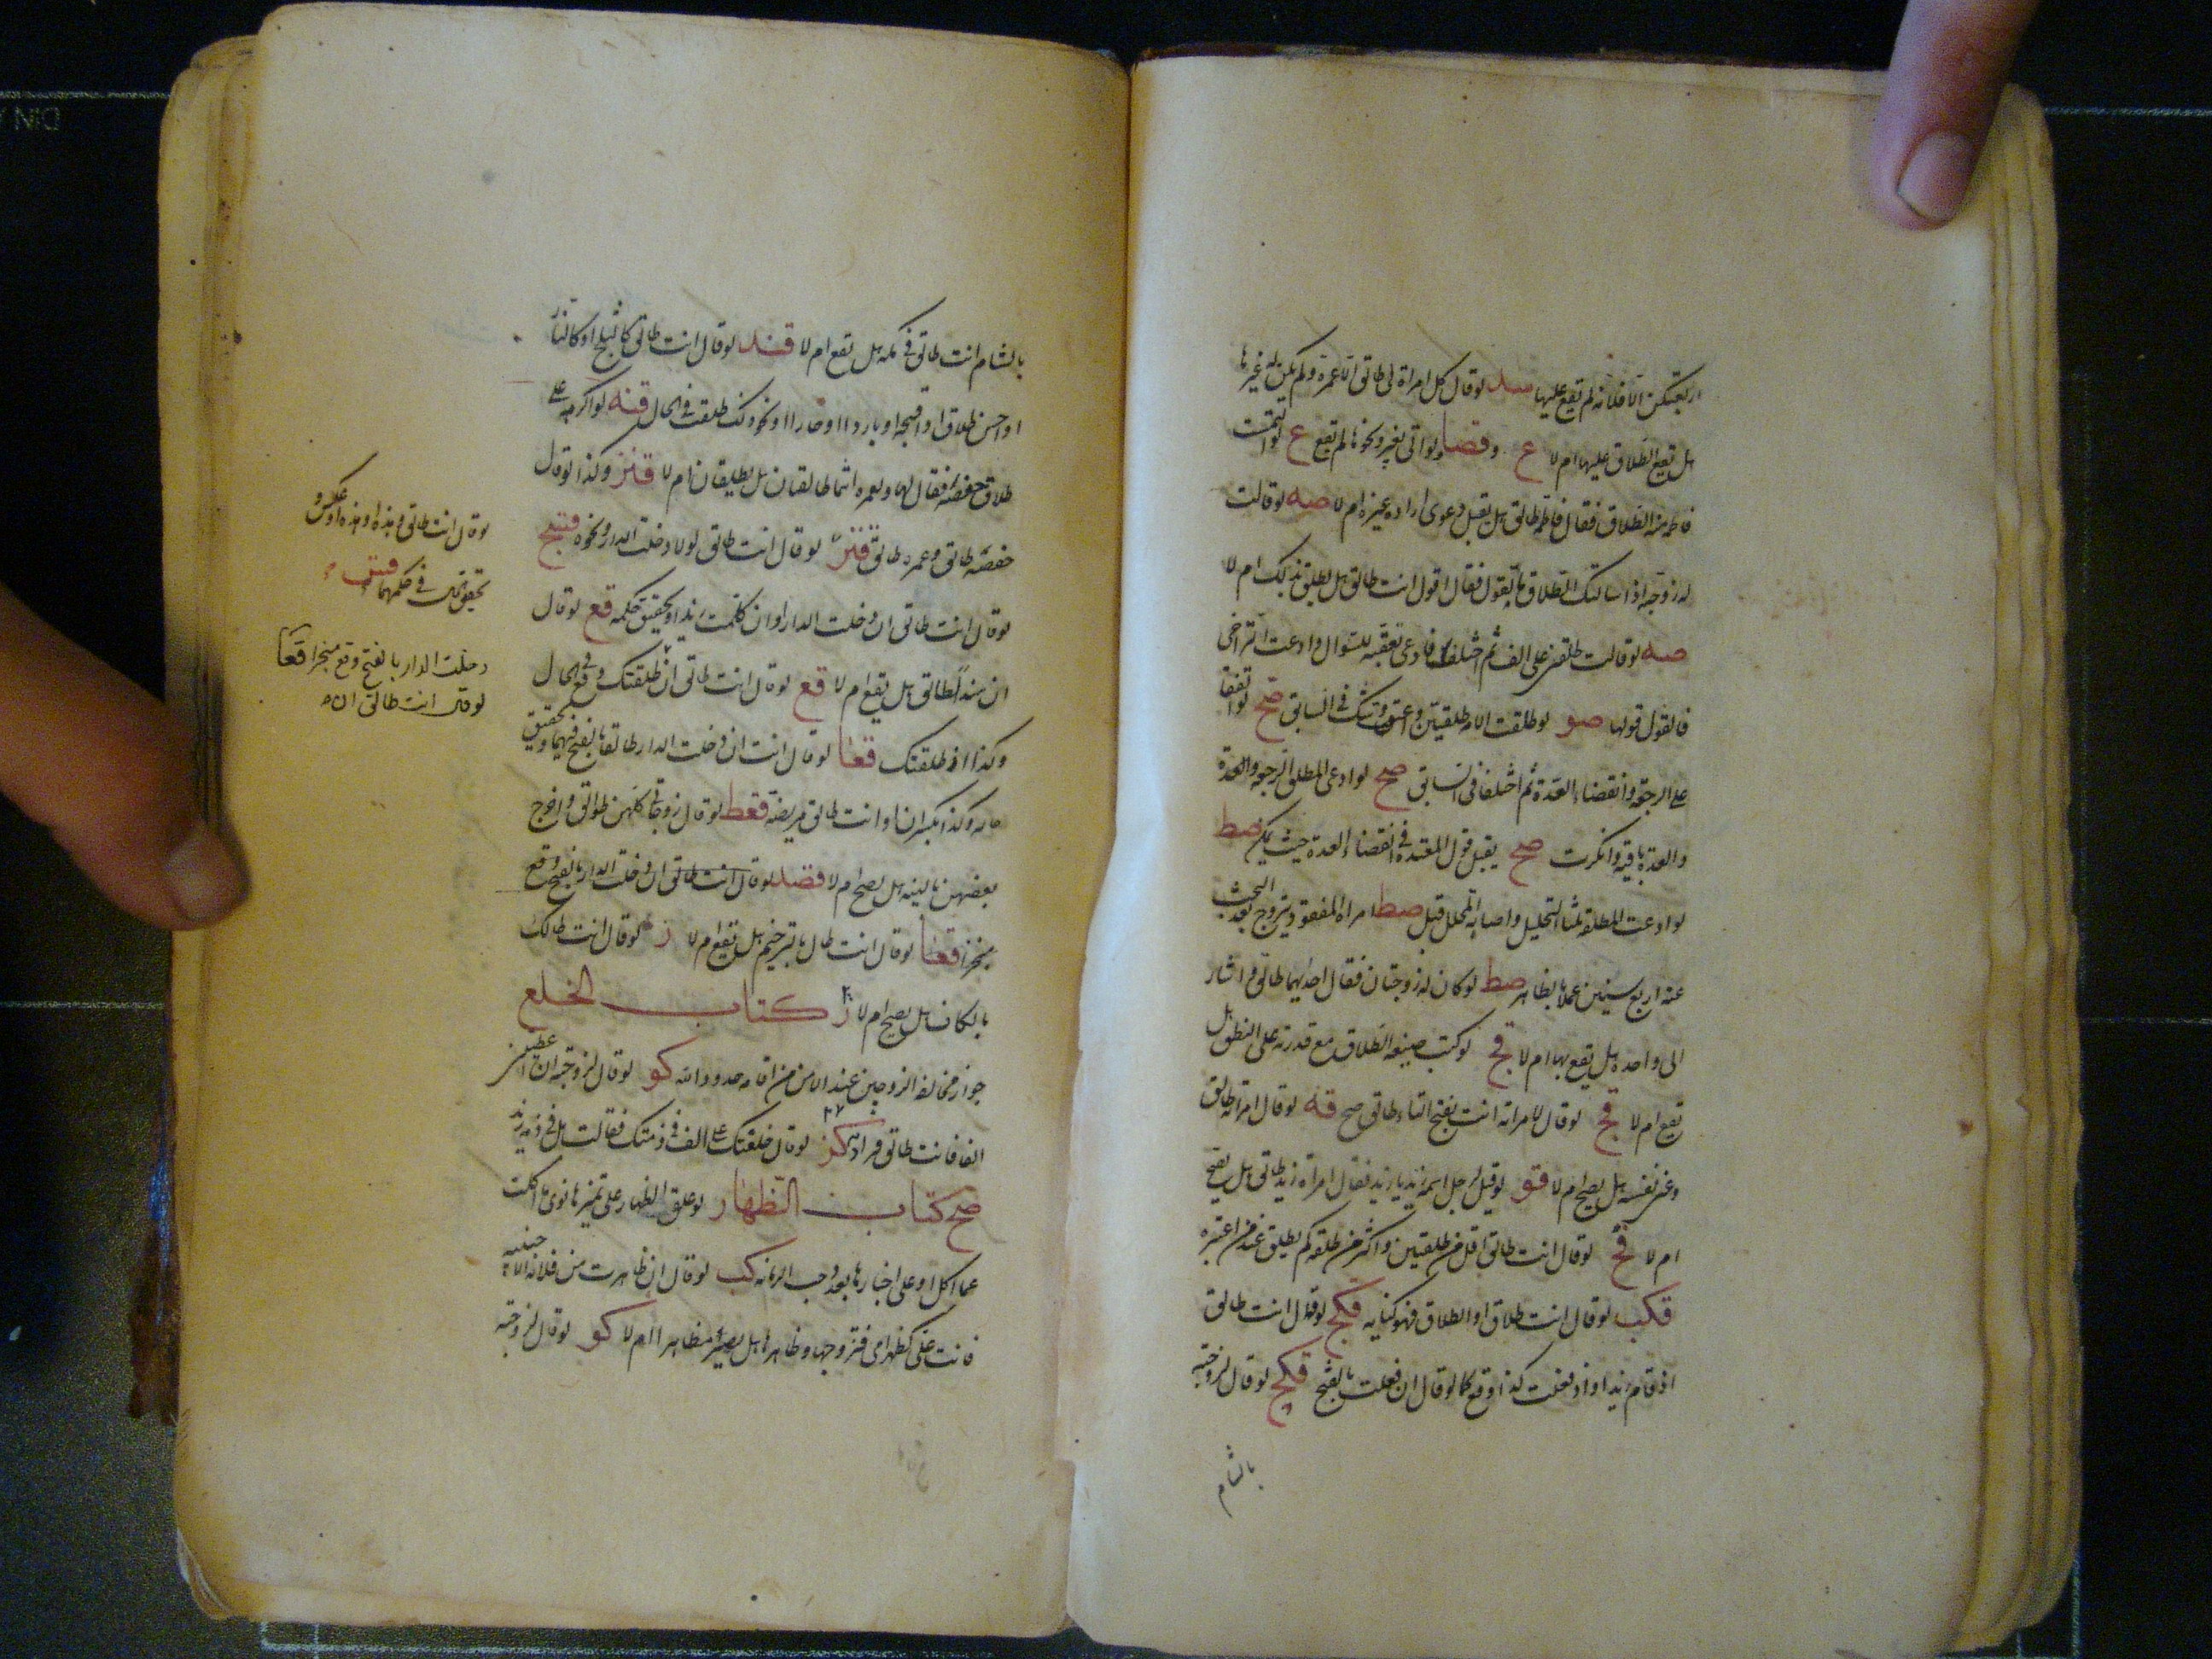 اربعتكن الا فلانة لم تقع عليها صد لو قال كل امراة لى طالق الا عمرة ولم يكن له غيرها
هل تقع الطلاق عليها ام لا ع وقصا ولو اتى بغير ونحوها لم تقع ع لو التمست
فاطمه منه الطلاق فقال فاطمه طالق هل يقبل دعوى اراده غيره ام لا صه لو قالت
له زوجته اذا سالتك الطلاق ما تقول فقال اقول انت طالق هل يطلق بذلك ام لا
صه لو قالت طلقنى على الف ثم اختلفا فادعى تعقبه للسؤال وادعت التراخى
فالقول قولها صو لو طلقت الامه طلقتين واعتقت وشك فى السابق صح لو اتفقا
على الرجعة وانقضاء العدة ثم اختلفا فى السابق صح لو ادعى المطلق الرجعه والعدة
والعدة باقية وانكرت صح يقبل قول المعتده فى انقضاء العدة حيث يمكن صط
لو ادعت المطلقه ثلثا التحليل واصابة المحلل قبل صط امراه المفقود يتزوج بعد البحث
عنه اربع سنين عملا بظاهر صط لو كان له زوجتان فقال احديهما طالق واشار
الى واحده هل يقع بها ام لا قج لو كتب صيغه الطلاق مع قدرته على النطق هل
تقع ام لا قج لو قال لامراته انت بفتح التاء طالق صح قه لو قال امراته طالق
وعنى نفسه هل يصح ام لا قو لو قيل لرجل اسمه زيد يا زيد فقال امراة زيد طالق هل يقع
ام لا قح لو قال انت طالق اقل من طلقتين واكثر من طلقه كم يطلق عند من اعتبره
قكب لو قال انت طلاق او الطلاق فهو كنايه قكج لو قال انت طالق
اذ قام زيد او اذ فعلت كذا وقع كما لو قال ان فعلت بالفتح قكح لو قال لزوجته
بالشام
بالشام انت طالق فى مكه هل تقع ام لا قند لو قال انت طالق كالثلج او كالنار
او احسن طلاق او اقبحه او باردا او حارا او نحو ذلك طلقت فى الحال قنه لو اكره على
طلاق حفصه فقال لها ولعمره انتما طالقتان هل يطلقان ام لا قنز وكذا لو قال
حفصه طالق وعمره طالق قنز لو قال انت طالق لولا دخلت الدار ونحوه قنح
لو قال انت طالق ان دخلت الدار او ان كلمت زيدا وتحقيق حكمه قع لو قال
ان هندا لطالق هل يقع ام لا قع لو قال انت طالق ان طلقتك وقع فى الحال
وكذا اذ طلقتك قعا لو قال انت ان دخلت الدار طالقا بالفتح فيهما وتحقيق
حاله وكذا بكسر ان او انت طالق مريضة قعط لو قال زوجاتى كلهن طوالق واخرج
بعضهن بالنيه هل يصح ام لا قضد لو قال انت طالق ان دخلت الدار بالفتح وقع
منجزا قعا لو قال انت طال بالترخيم هل تقع ام لا ز لو قال انت طالك
بالكاف هل يصح ام لا ز كتاب الخلع
جواز مخالفه الزوجين عند الامن من اقامه حدود الله كو لو قال لزوجته ان اعطيتنى
الفا فانت طالق كز لو قال خلعتك على الف فى ذمتك فقالت بل فى ذمه زيد
صح كتاب الظهار لو علق الظهار على تميزها نوى ما اكلت
عما اكل او على اخبارها بعدد حب الرمانه كب لو قال ان ظاهرت من فلانه الاجنبيه
فانت على كظهر امى فتزوجها وظاهرها هل يصير مظاهرا ام لا كو لو قال لزوجته
لو قال انت طالق وهذه او هذه او عكس و
تحقيق فى حكمهما قس
دخلت الدار بالفتح وقع منجزا قعا
لو قال انت طالق ان